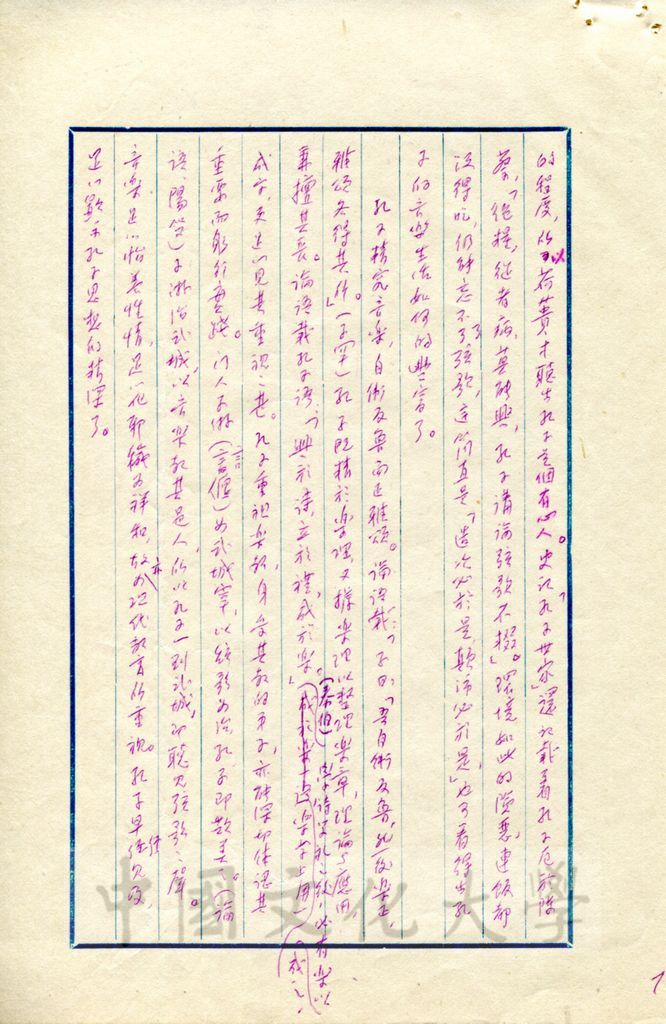 的程度,所以荷蕡才聽出孔子是個有心人。史記「孔子世家」還記載着孔子厄於陳
蔡,「絕糧,從者病,莫能興,孔子講論弦歌不輟」。環境如此的險惡,連飯都
沒得吃,仍能忘不了弦歌,這簡直是「造次必於是,顛沛必於是」,也可看得出孔
子的音樂生活如何的豐富了。
孔子精究音樂,自衛反魯而正雅頌。論語載:「子曰:「吾自衛反魯,然後樂正,
雅頌各得其所」。(子罕)孔子既精於樂理,又據樂理以整理樂章,理論與應用,
兼擅其長。論語載孔子語:「興於詩,立於禮,成於樂。」(泰伯)學詩學禮之後,必有樂以
成之,
成字,更足以見其重視之甚。孔子重視樂教,身受其教的弟子,亦能深切體認其
重要而躬行實踐。門人子游(言偃)為武城宰,以絃歌為治,孔子即歎美。(論
語、陽貨)子游治武城,以音樂教其邑人,所以孔子一到武城,即聽見弦歌之聲。
音樂足以怡養性情,足以化邪穢為祥和,故亦為現代教育所重視。孔子早經見及,
足以顯示孔子思想的精深了。
中國文化大學
7